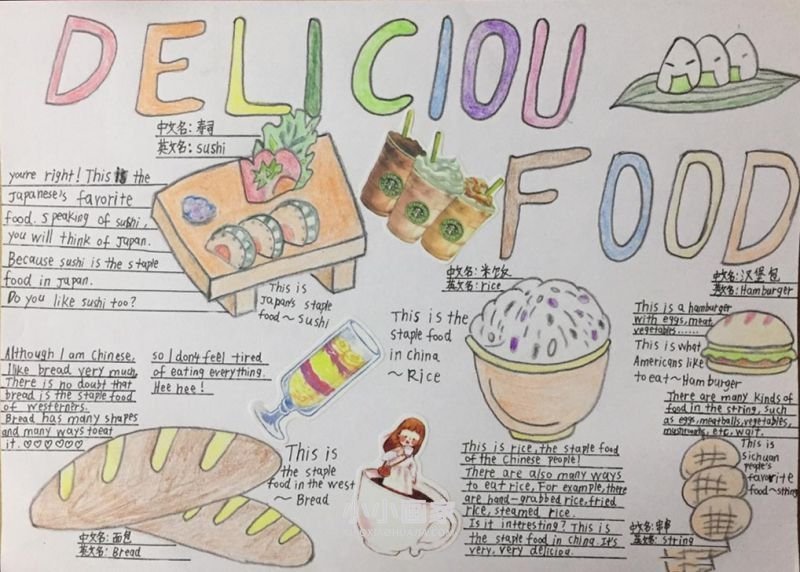 DELICIOU
FOOD
中文名: 寿司
英文名: sushi
you're right! This is the
Japanese's favorite
food. Speaking of sushi,
you will think of Japan.
Because sushi is the staple
food in Japan.
Do you like sushi too?
This is
Japan's staple
food~Sushi
中文名: 米饭
英文名: rice
This is the
staple food
in china
~Rice
中文名: 汉堡包
英文名: Hamburger
This is a hamburger
with eggs, meat,
vegetables......
This is what
Americans like
to eat~Hamburger
There are many kinds of
food in the string, such
as eggs, meatballs, vegetables,
mushrooms, etc, wait.
Although I am Chinese,
I like bread very much,
There is no doubt that
bread is the staple food
of westerners.
Bread has many shapes
and many ways to eat
it. ♡♡♡♡♡♡
so I don't feel tired
of eating everything.
Hee hee!
This is
the staple
food in the west
~Bread
中文名: 面包
英文名: Bread
This is rice, the staple food
of the Chinese people!
There are also many ways
to eat rice, For example, there
are hand-grabbed rice, fried
rice, steamed rice.
Is it intresting? This is
the staple food in China. It's
very, very deliciou.
This is
sichuan
people's
favorite
food~string
中文名: 串串
英文名: String
小小画家